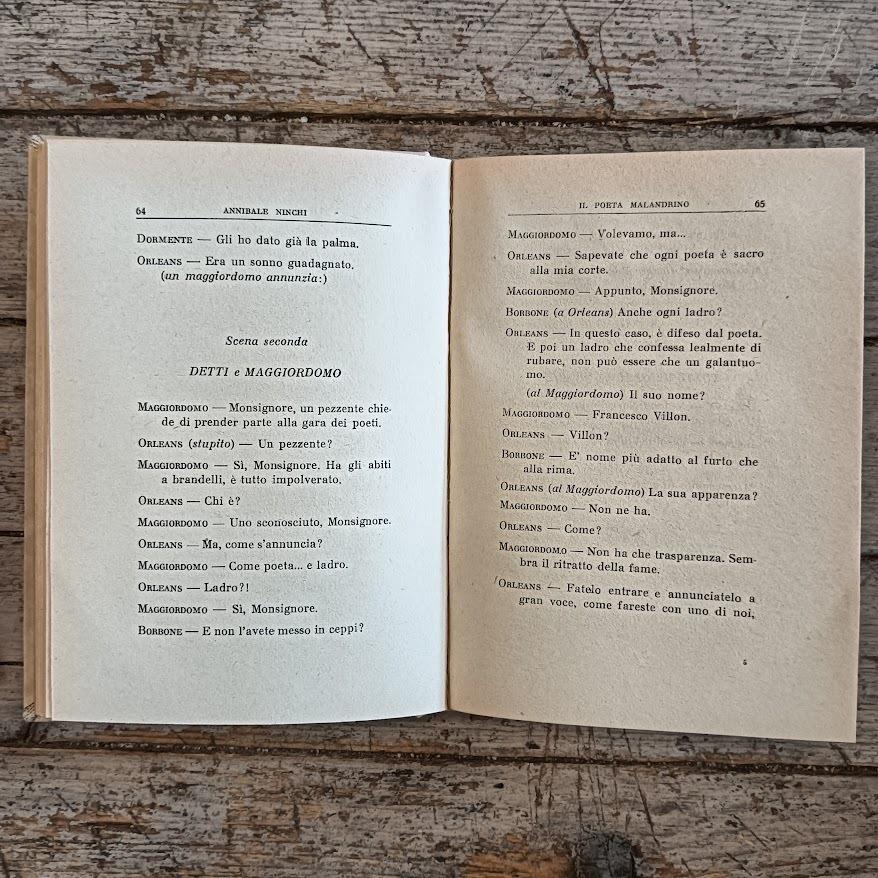 64 ANNIBALE NINCHI
DORMENTE — Gli ho dato già la palma.
ORLEANS — Era un sonno guadagnato.
(un maggiordomo annunzia:)
Scena seconda
DETTI e MAGGIORDOMO
MAGGIORDOMO — Monsignore, un pezzente chie-
de di prender parte alla gara dei poeti.
ORLEANS (stupito) — Un pezzente?
MAGGIORDOMO — Sì, Monsignore. Ha gli abiti
a brandelli, è tutto impolverato.
ORLEANS — Chi è?
MAGGIORDOMO — Uno sconosciuto, Monsignore.
ORLEANS — Ma, come s'annuncia?
MAGGIORDOMO — Come poeta... e ladro.
ORLEANS — Ladro?!
MAGGIORDOMO — Sì, Monsignore.
BORBONE — E non l'avete messo in ceppi?
IL POETA MALANDRINO 65
MAGGIORDOMO — Volevamo, ma...
ORLEANS — Sapevate che ogni poeta è sacro
alla mia corte.
MAGGIORDOMO — Appunto, Monsignore.
BORBONE (a Orleans) Anche ogni ladro?
ORLEANS — In questo caso, è difeso dal poeta.
E poi un ladro che confessa lealmente di
rubare, non può essere che un galantuo-
mo.
(al Maggiordomo) Il suo nome?
MAGGIORDOMO — Francesco Villon.
ORLEANS — Villon?
BORBONE — E' nome più adatto al furto che
alla rima.
ORLEANS (al Maggiordomo) La sua apparenza?
MAGGIORDOMO — Non ne ha.
ORLEANS — Come?
MAGGIORDOMO — Non ha che trasparenza. Sem-
bra il ritratto della fame.
ORLEANS — Fatelo entrare e annunciatelo a
gran voce, come fareste con uno di noi,
5